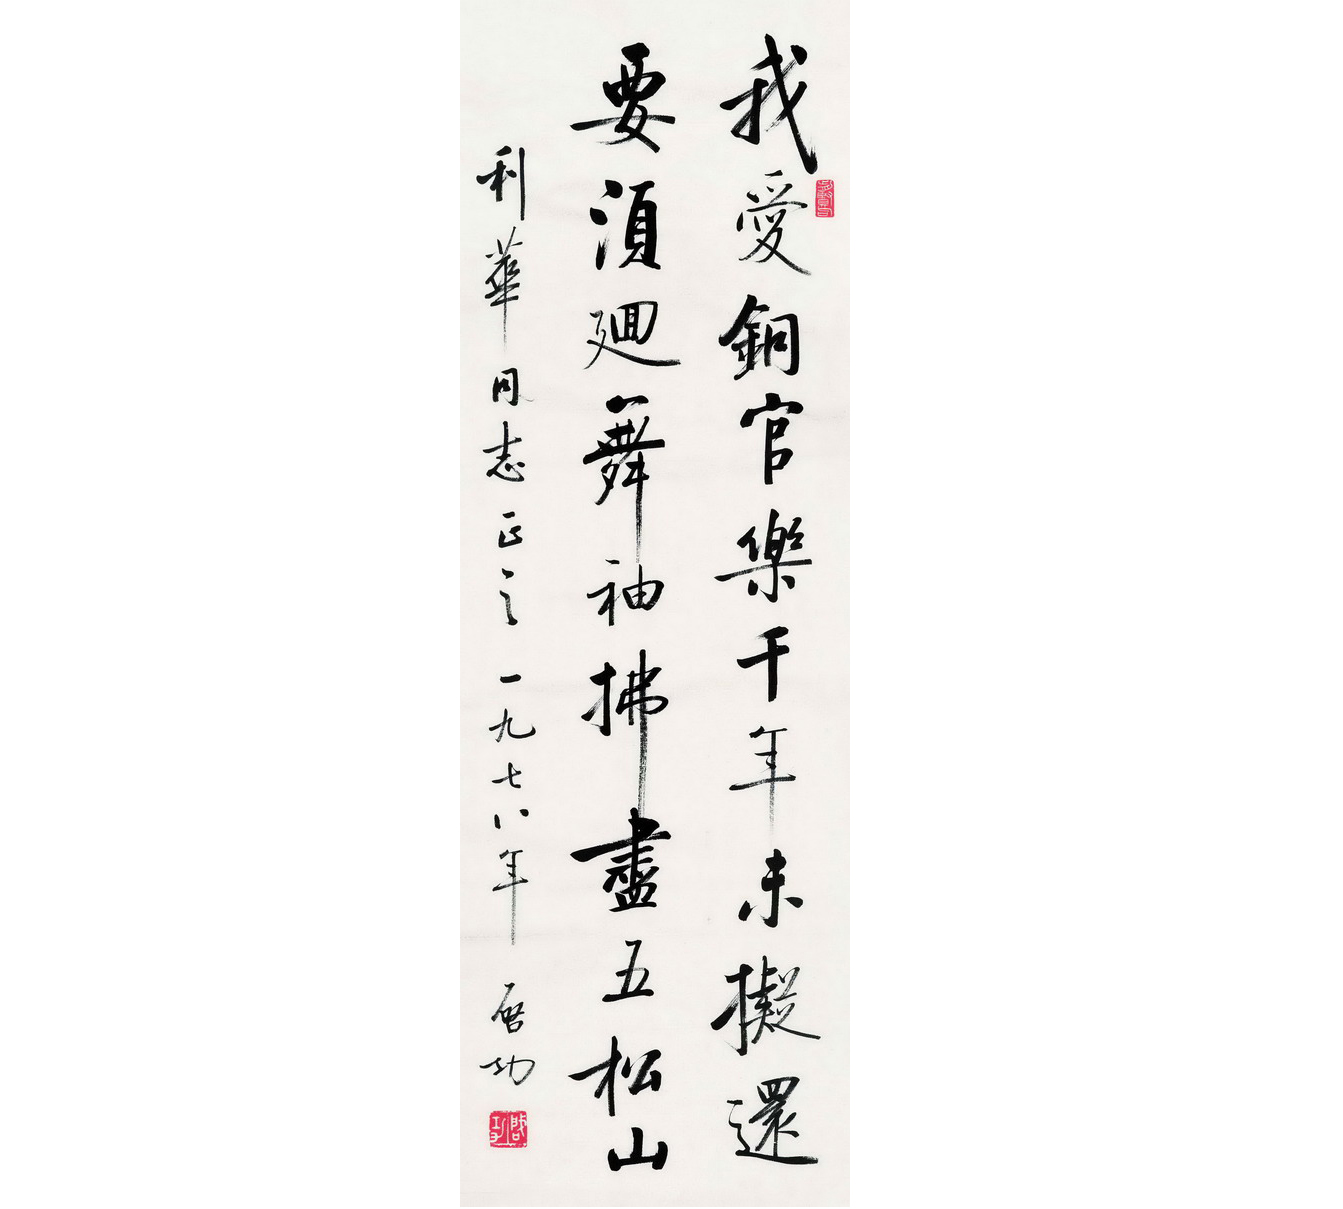 我愛銅官樂千年未擬還
要須廻舞袖拂盡五松山
利華同志正之一九七八年 启功
启功